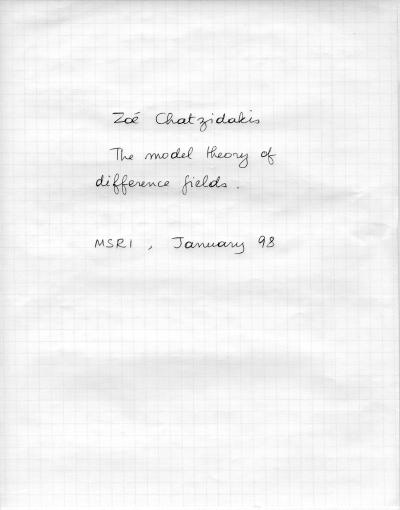 Zoé Chatzidakis
The model theory of
difference fields.
MSRI, January 98